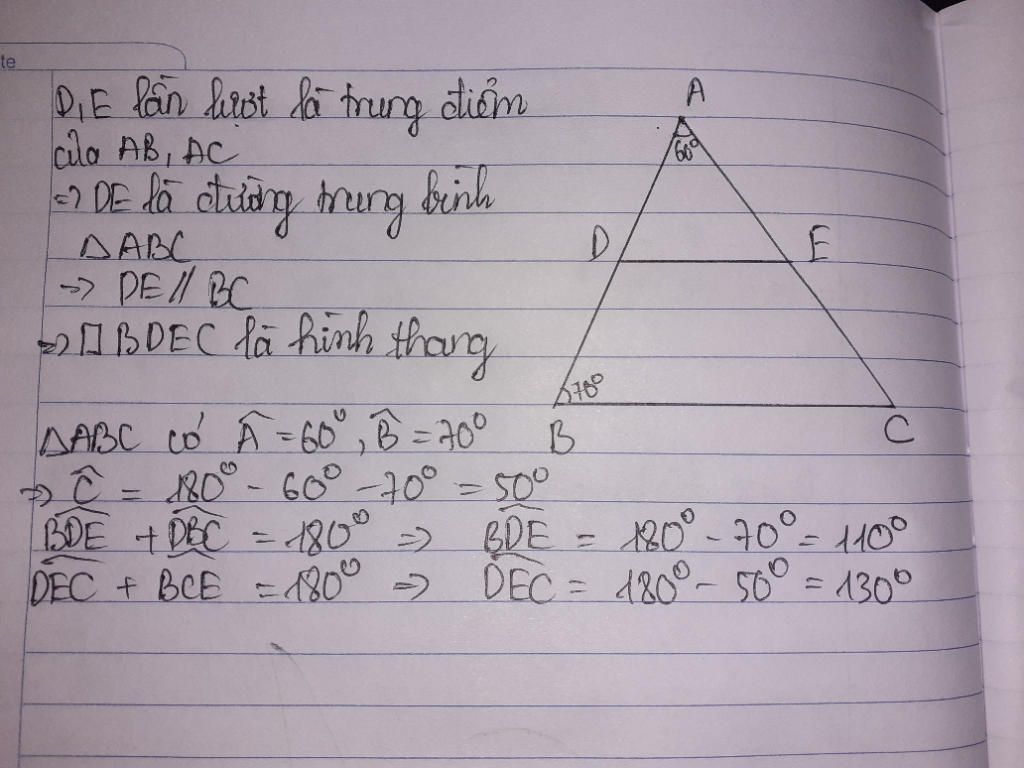 te
D, E lần lượt là trung điểm
của AB, AC
=> DE là đường trung bình
△ABC
=> DE // BC
=> □ BDEC là hình thang
A
60°
D
E
70°
B
C
△ABC có Â = 60°, B̂ = 70°
=> Ĉ = 180° - 60° - 70° = 50°
B͡DE + D͡BC = 180° => B͡DE = 180° - 70° = 110°
D͡EC + B͡CE = 180° => D͡EC = 180° - 50° = 130°